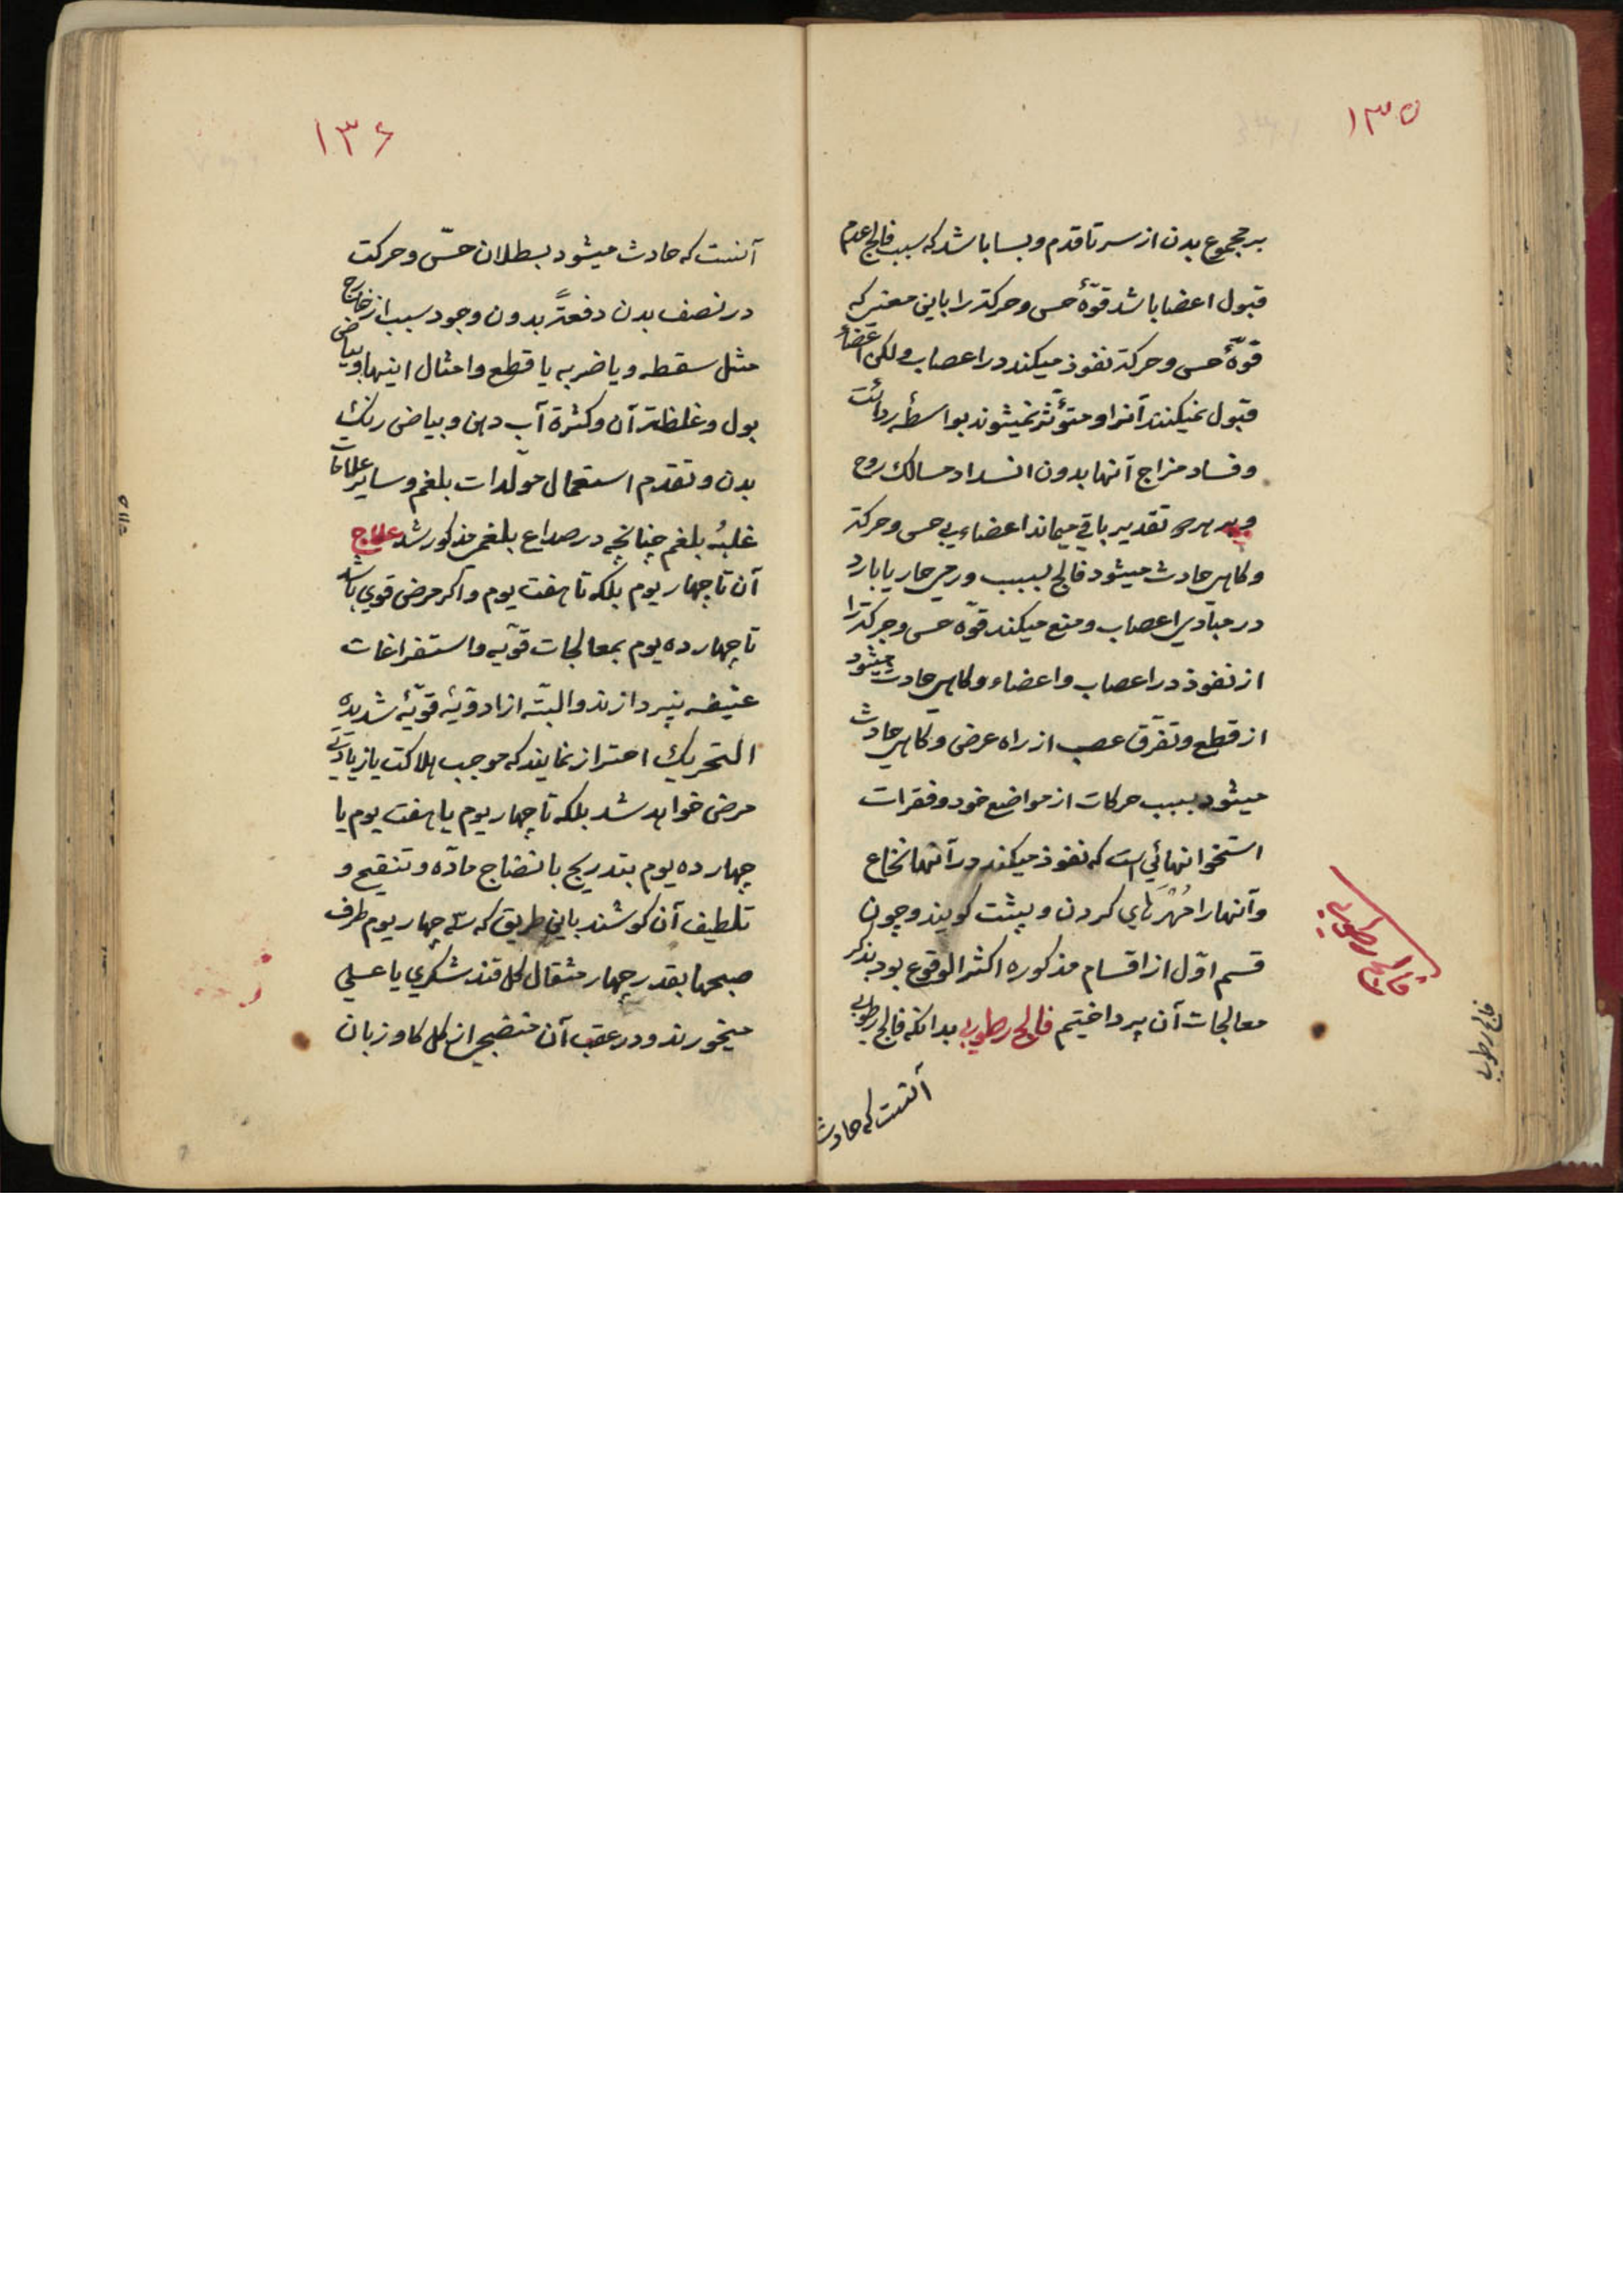 ۱۳۵
بر مجموع بدن از سر تا قدم و بسا باشد که سبب فالج عدم
قبول اعضا باشد قوّهٔ حس و حرکة را باین معنی که
قوّهٔ حس و حرکة نفوذ میکند در اعصاب و لکن اعضاء
قبول نمیکنند آنرا و متؤثر نمیشوند بواسطهٔ ردائت
و فساد مزاج آنها بدون انسداد مسالك روح
تقدیر باقی میماند اعضاء بی حس و حرکة
و کاهی حادث میشود فالج بسبب ورمی حار یا بارد
در مبادی اعصاب و منع میکند قوّه حس و حرکة را
از نفوذ در اعصاب و اعضاء و کاهی حادث میشود
از قطع و تفرّق عصب از راه عرض و کاهی حادث
میشود بسبب حرکات از مواضع خود و فقرات
استخوانهائی است که نفوذ میکند در آنها نخاع
و آنها را مُهْرَهای کردن و پشت کویند و چون
قسم اوّل از اقسام مذکوره اکثر الوقوع بود بذکر
معالجات آن پرداختیم فالج رطوبی بدانکه فالج رطوبی
آنست که حادث
فالج رطوبی
فالج رطوبی
۱۳۶
آنست که حادث میشود بسطلان حسّ و حرکت
در نصف بدن دفعةً بدون وجود سبب از خارج
مثل سقطه و یا ضربه یا قطع و امثال اینها و بیاض
بول و غلظة آن و کثرة آب دهن و بیاض رنك
بدن و تقدم استعمال مولّدات بلغم و سایر علامات
غلبهٔ بلغم چنانچه در صداع بلغمی مذکور شد علاج
آن تا چهار یوم بلکه تا هفت یوم و اکر مرض قوی باشد
تا چهارده یوم بمعالجات قوّیه و استفراغات
عنیفه نپردازند و البتّه از ادویّهٔ قویّهٔ شدیده
التحریك احتراز نمایند که موجب هلاکت یا زیادتی
مرض خواهد شد بلکه تا چهار یوم یا هفت یوم یا
چهارده یوم بتدریج بانضاج مادّه و تنقیح و
تلطیف آن کوشند باین طریق که سه چهار یوم طرف
صبحها بقدر چهار مثقال کل قند شکری یا عسلی
میخورند و در عقب آن منضجی از کل کاو زبان